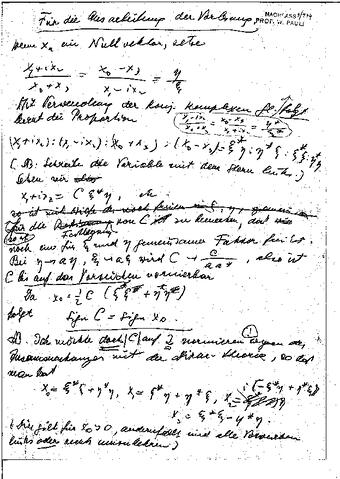 Für die Ausarbeitung der Vorlesung.
NACHLASS
PROF. W. PAULI
Wenn xₖ ein Nullvektor, setze
(x₁+ix₂)/(x₀+x₃) = (x₀-x₃)/(x₁-ix₂) = η/ξ
Mit Verwendung der konj. komplexen Gl. folgt
die Proportion
(x₁+ix₂):(x₁-ix₂):(x₀+x₃):(x₀-x₃)=
(NB: Schreibe die Variable mit dem Stern links!)
x₁+ix₂ = C ξ*η, etc.
von C ist zu beachten, daß
noch ein für ξ und η gemeinsamer Faktor frei ist.
Bei η→aη, ξ→aξ wird C → C/aa*, also ist
C bis auf das Vorzeichen normierbar
Da x₀ = ½ C (ξξ* + ηη*)
folgt
Sign C = Sign x₀.
NB. Ich möchte doch |C| auf 2 normieren wegen des
Zusammenhanges mit der Dirac-Theorie, so daß
man hat
x₀ = ξ*ξ + η*η, x₁ = ξ*η + η*ξ, x₂ = i(-ξ*η + η*ξ)
x₃ = ξ*ξ - η*η.
(Dies gilt für x₀>0, andernfalls sind alle Vorzeichen
links oder rechts umzukehren)